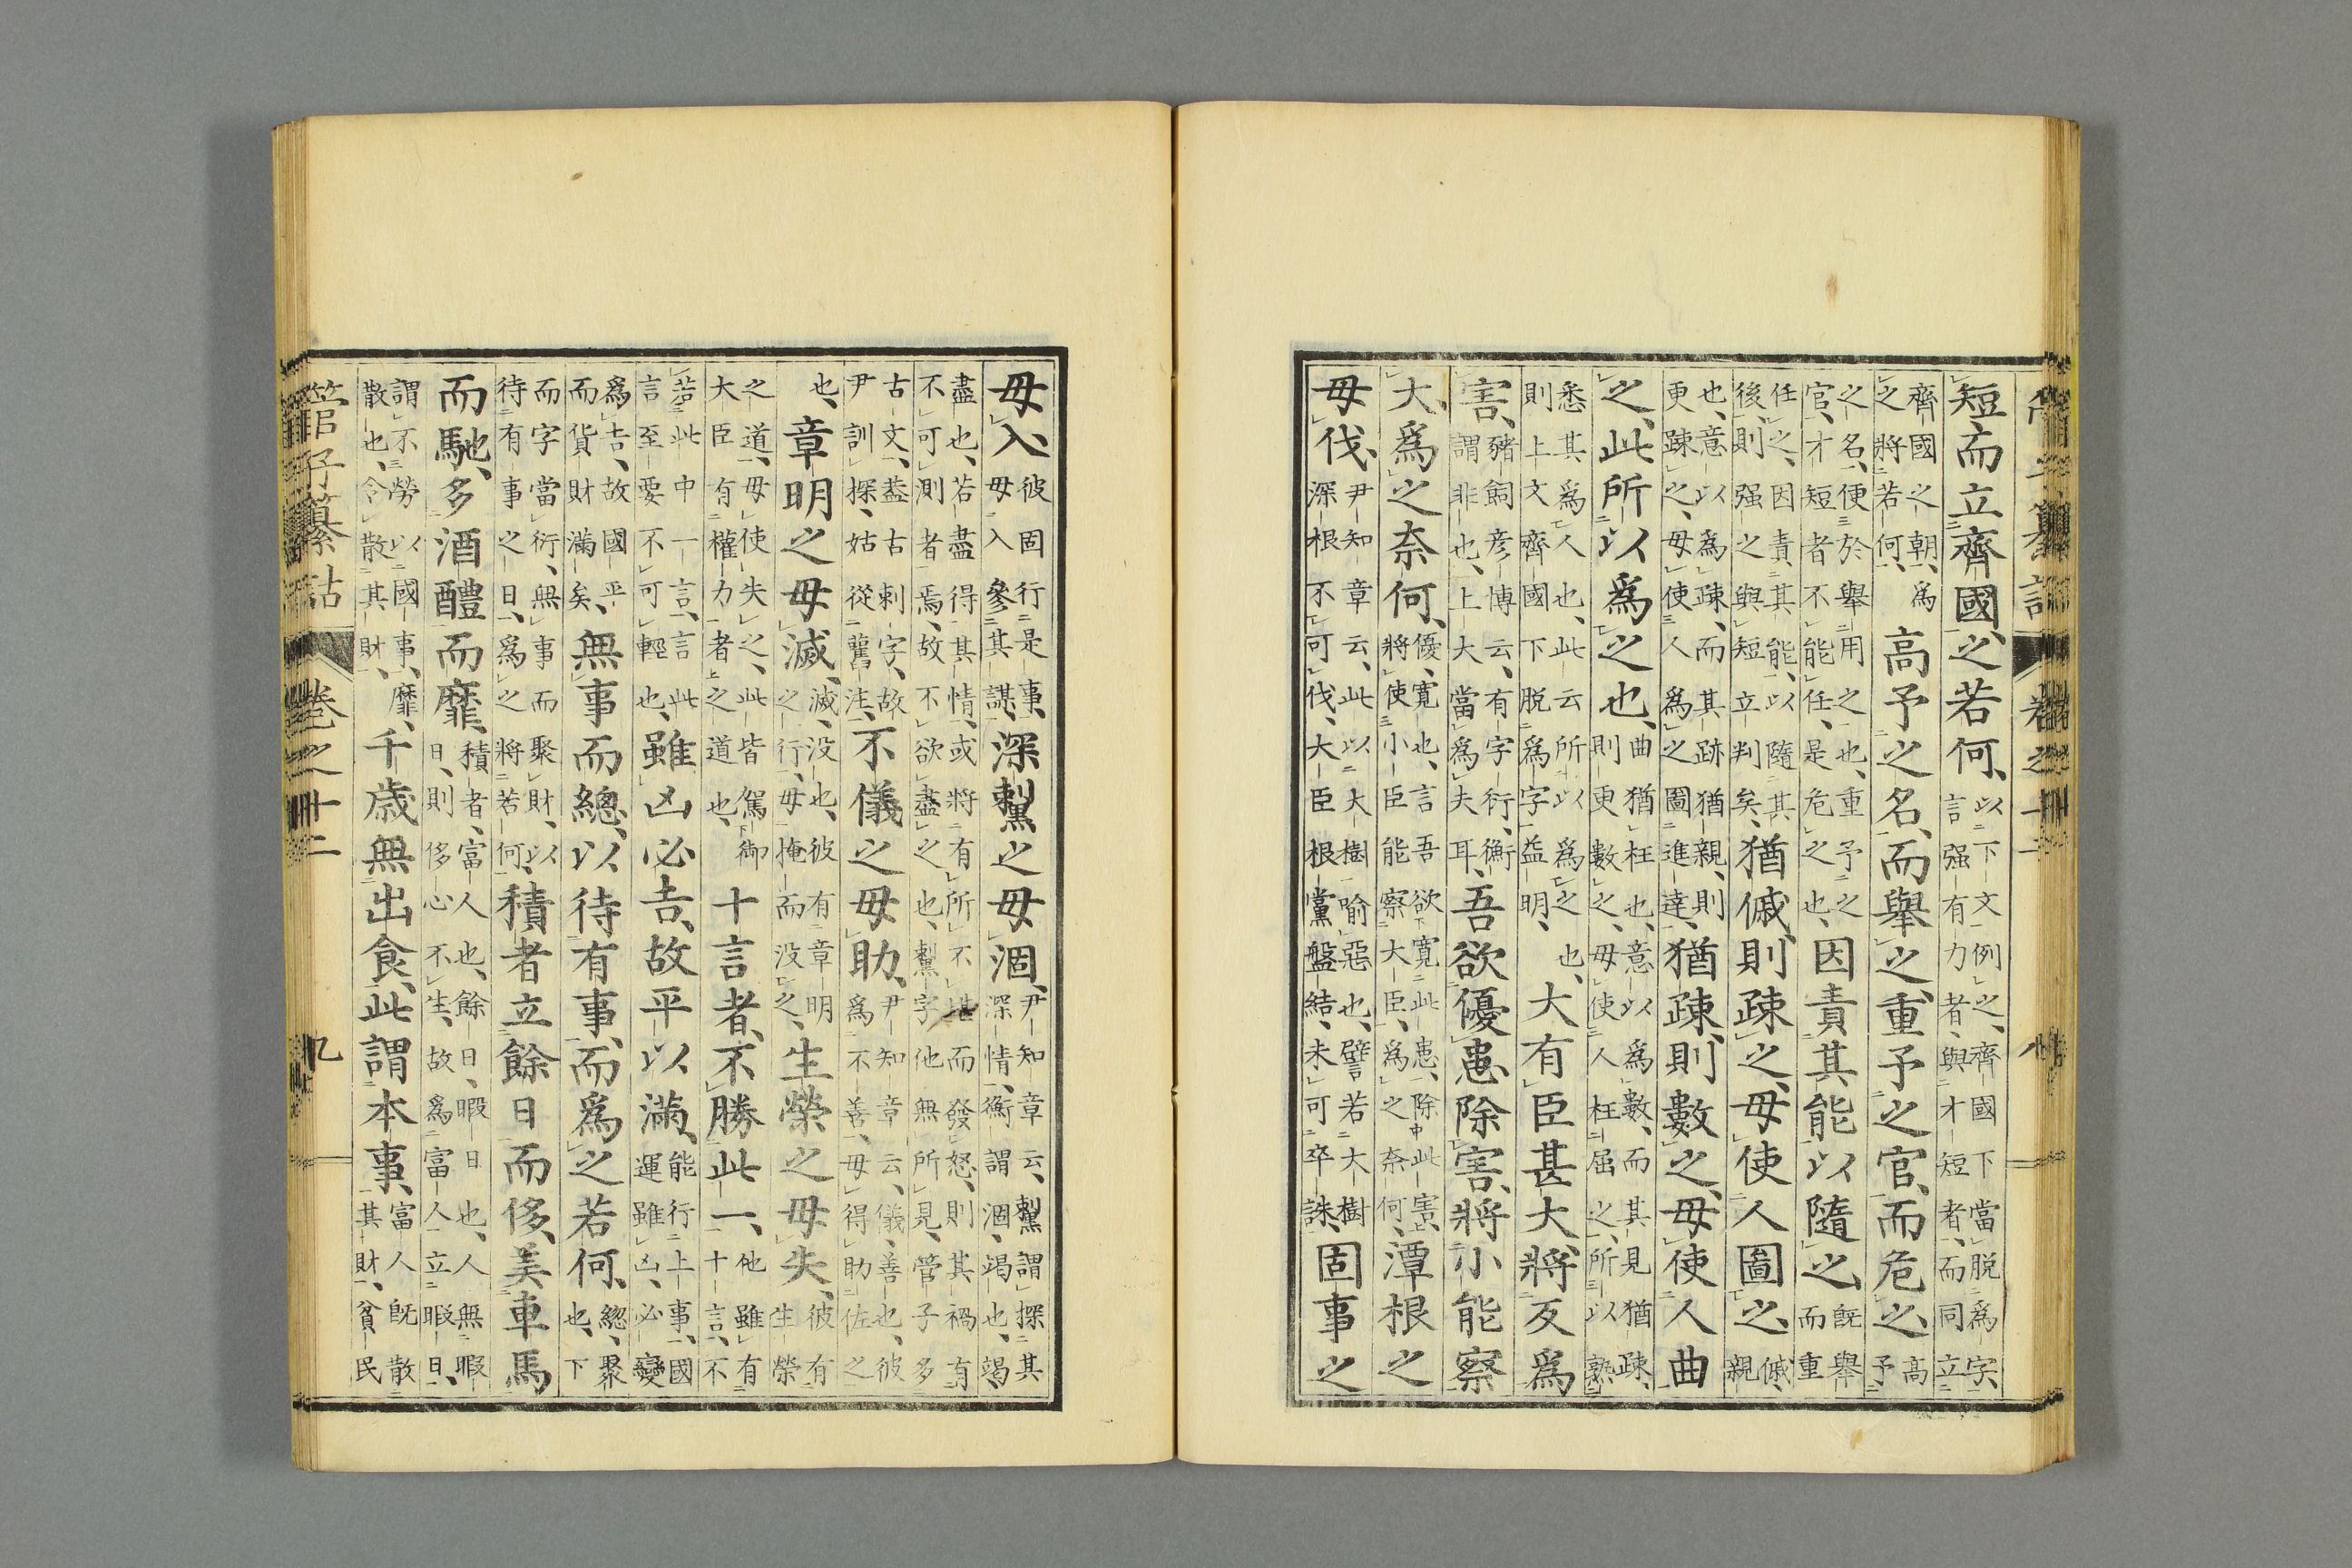 管子纂詁 卷之十二 八
短、而立齊國、之若何、以下文例之、齊國下當脱爲字、言强有力者、與才短者、而同立
齊國之朝、爲之將若何、高予之名、而舉之、重予之官、而危之、高予
之名、便於舉用之也、重予之官、才短者不能任、是危之也、因責其能以隨之、既舉而重
任之、因責其能、以隨其後、則强之與短立判矣、猶傶則疎之、毋使人圖之、傶、親
也、意以爲疎、而其跡猶親、則更疎之、毋使人爲之圖進達、猶疎、則數之、毋使人曲
之、此所以爲之也、曲猶枉也、意以爲數、而其見猶疎、則更數之、毋使人枉屈之、所以熟
悉其爲人也、此云所以爲之也、則上文齊國下脱爲字益明、大有臣甚大、將反爲
害、豬飼彦博云、有字衍、衡謂非也、上大當爲夫耳、吾欲優患除害、將小能察
大、爲之奈何、優、寛也、言吾欲寛此患、除此害、將使小臣能察大臣、爲之奈何、潭根之
毋伐、尹知章云、此以大樹喻惡也、譬若大樹深根不可伐、大臣根黨盤結、未可卒誅、固事之
毋入、彼固行是事、毋入參其謀、深䵩之毋涸、尹知章云、䵩謂探其深情、衡謂涸、竭也、竭、
盡也、若盡得其情、或將有所不堪而發怒、則其禍有不可測者焉、故不欲盡之也、䵩字他無所見、管子多
古文、葢古剌字、故尹訓探、姑從舊注、不儀之毋助、尹知章云、儀、善也、彼爲不善、毋得助佐之
也、章明之毋滅、滅、没也、彼有章明之行、毋掩而没之、生榮之毋失、彼有生榮
之道、毋使失之、此皆駕御大臣有權力者之道也、十言者、不勝此一、他雖有十言、不
若此中一言、言此言至要不可輕也、雖凶必吉、故平以滿、能行上事、國運雖凶、必變
爲吉、故國平而貨財滿矣、無事而總、以待有事、而爲之若何、總、聚也、下
而字當衍、無事而聚財、以待有事之日、爲之將若何、積者立餘日而侈、美車馬
而馳、多酒醴而靡、積者、富人也、餘日、暇日也、人無暇日、則侈心不生、故爲富人立暇日、
謂不勞以國事、靡、散也、令散其財、千歳無出食、此謂本事、富人既散其財、貧民
管子纂詁 卷之十二 九